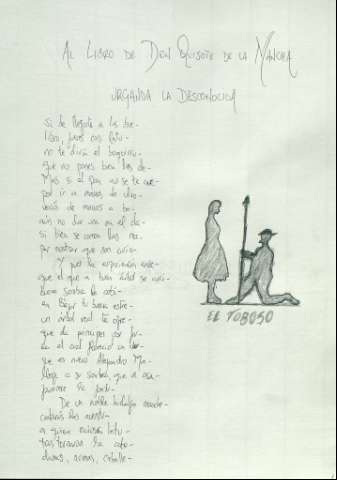 AL LIBRO DE DON QUIJOTE DE LA MANCHA
URGANDA LA DESCONOCIDA
si de llegarte a los bue-
libro, fueres con letu-
no te dirá el boquirru-
que no pones bien los de-
Mas si el pan no se te cue-
por ir a manos de idio-
verás de manos a bo-
aún no dar una en el cla-
si bien se comen las ma-
por mostrar que son curio-
Y pues la experiencia ense-
que el que a buen árbol se arri-
buena sombra le cobi-
en Béjar tu buena estre-
un árbol real te ofre-
que da príncipes por fru-
en el cual floreció un du-
que es nuevo Alejandro Ma-
llega a su sombra, que a osa-
favorece la fortu-
De un noble hidalgo manche-
contarás las aventu-
a quien ociosas letu-
trastornaron la cabe-
damas, armas, caballe-
EL TOBOSO